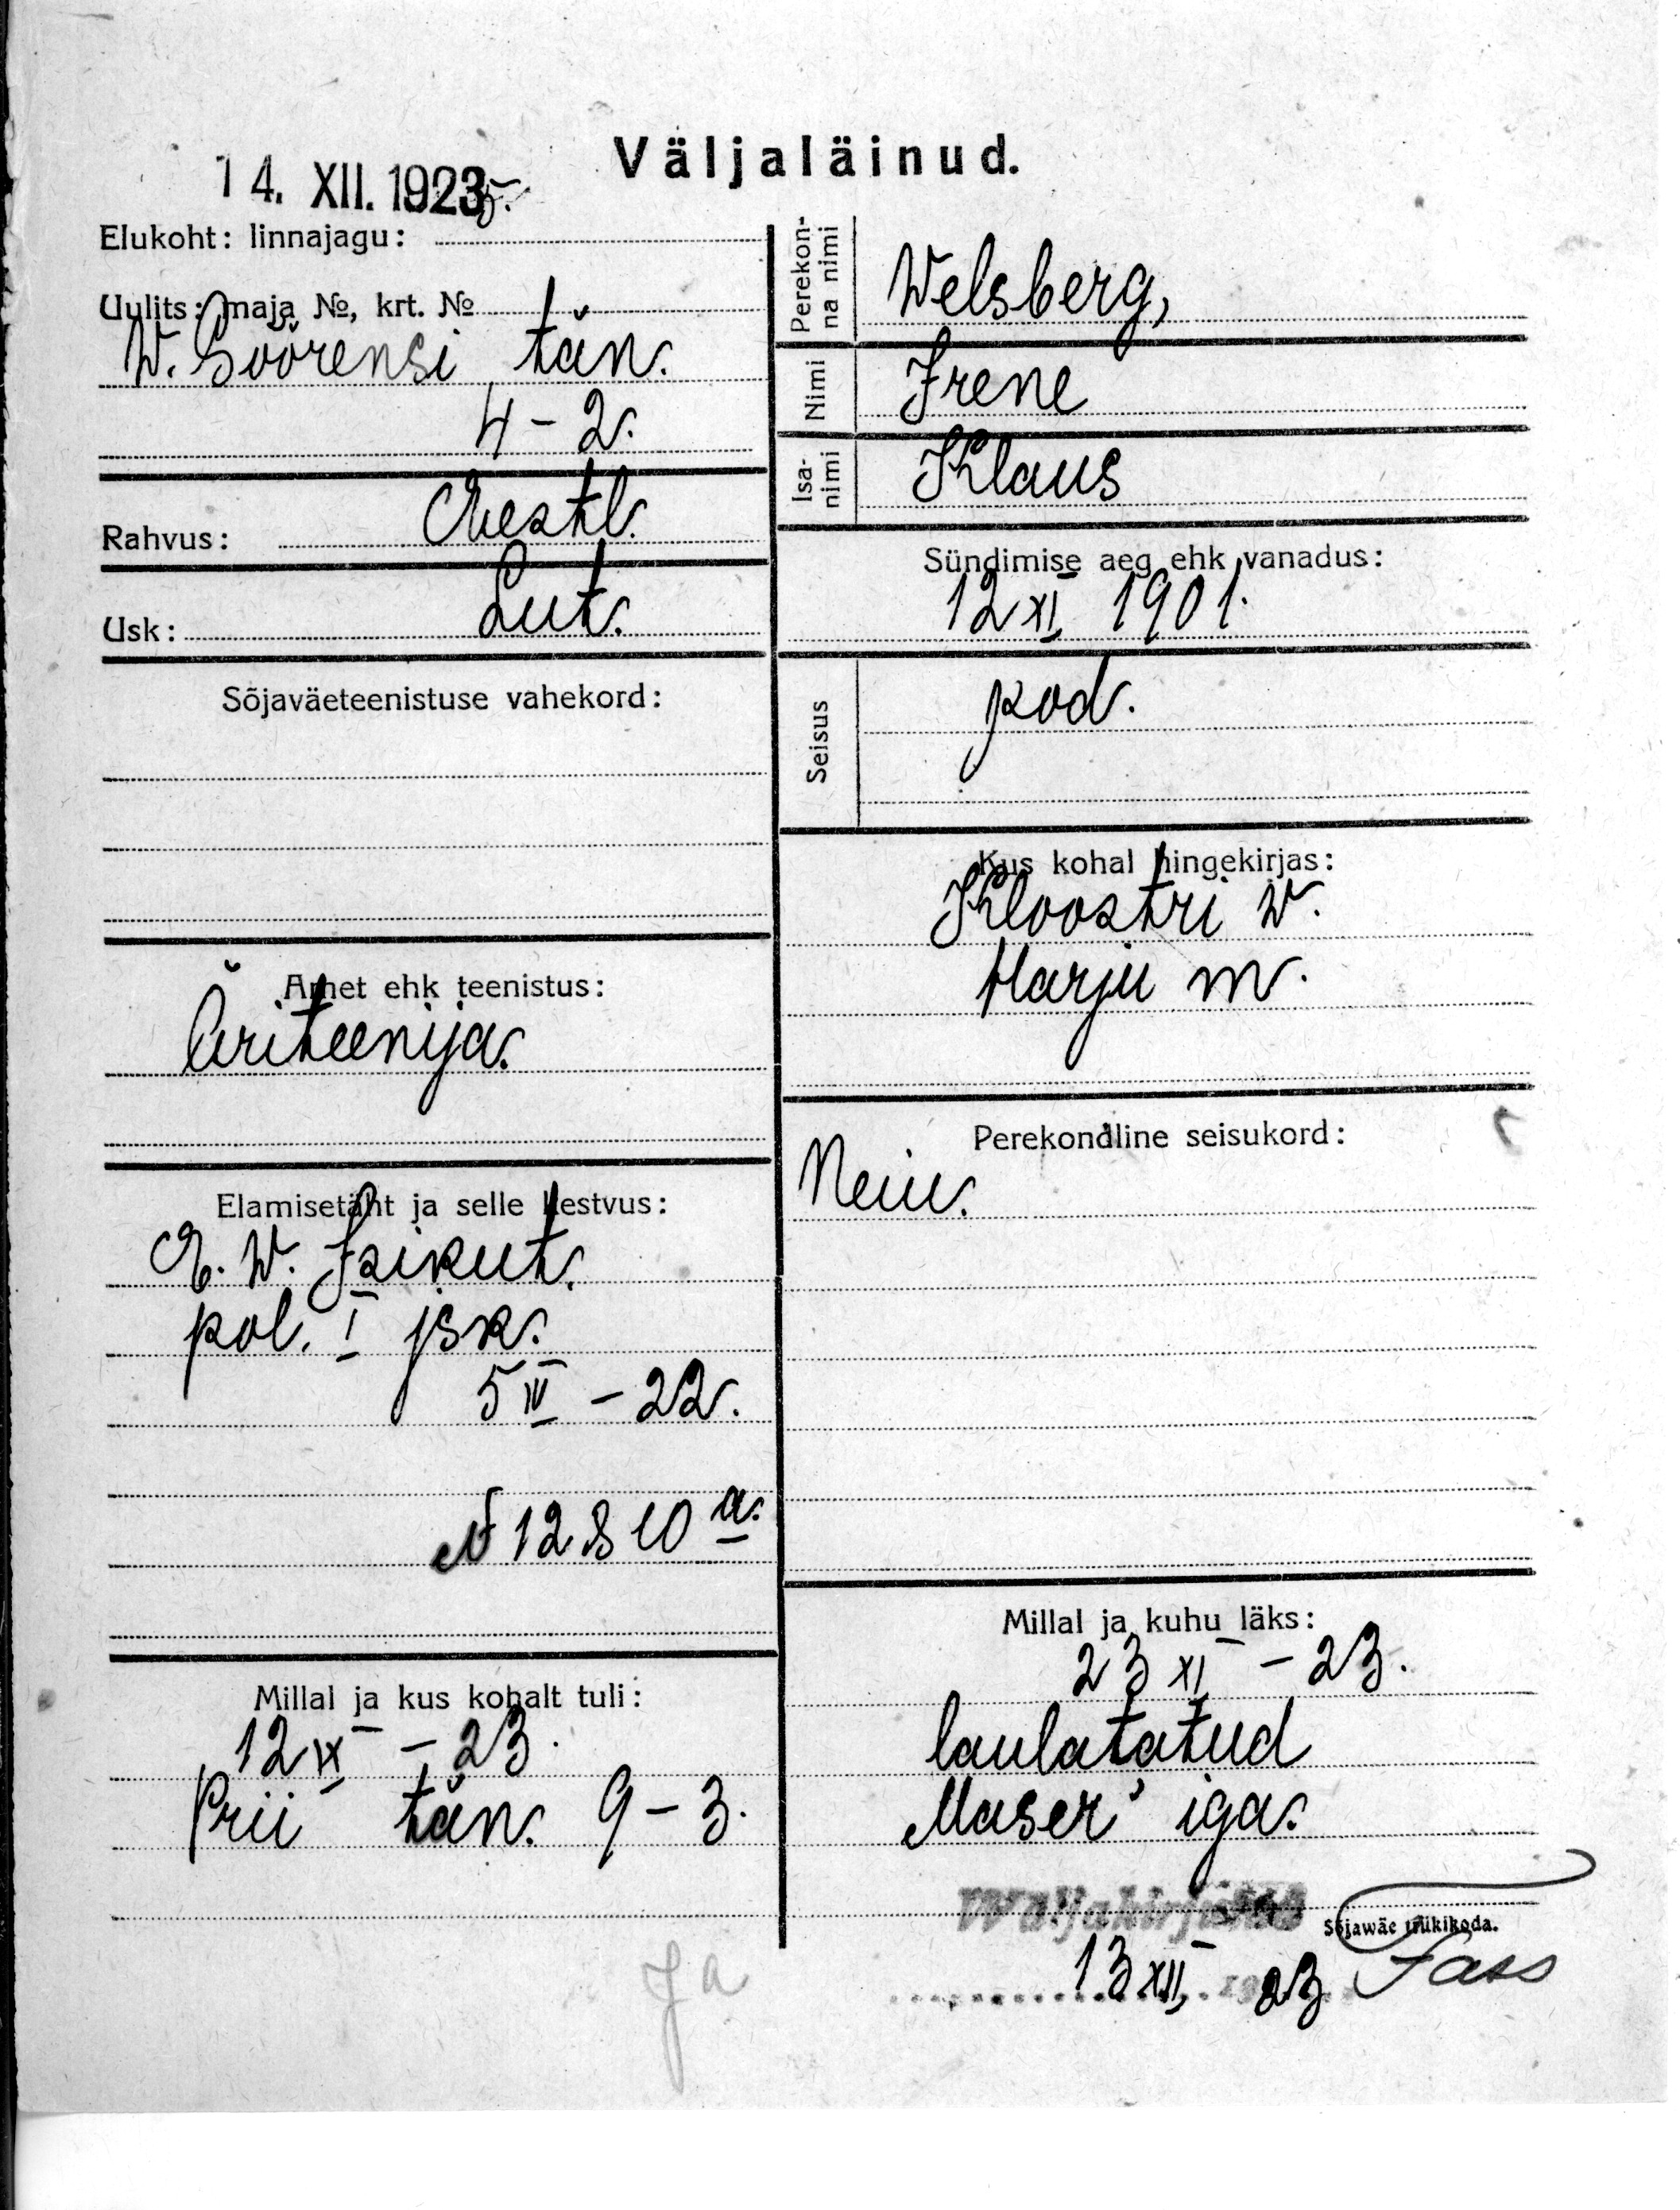 Väljaläinud.
14. XII. 1923
Elukoht: linnajagu:
Uulits: maja №, krt. №
W. Söörensi tän.
4 - 2.
Rahvus: Eestl.
Usk: Lut.
Sõjaväeteenistuse vahekord:
Amet ehk teenistus:
Äriteenija.
Elamisetäht ja selle kestvus:
E. W. Isikut.
pol. I jsk.
5 IV - 22.
№ 12810 a.
Millal ja kus kohalt tuli:
12 IX - 23.
Prii tän. 9 - 3.
Perekon-
na nimi
Welsberg,
Nimi
Irene
Isa-
nimi
Klaus
Sündimise aeg ehk vanadus:
12 XI 1901.
Seisus
kod.
Kus kohal hingekirjas:
Kloostri w.
Harju m.
Perekondline seisukord:
Neiu.
Millal ja kuhu läks:
23 XI - 23.
laulatatud
Maser' iga.
Sõjawäe trükikoda.
13 XII 23
Ja